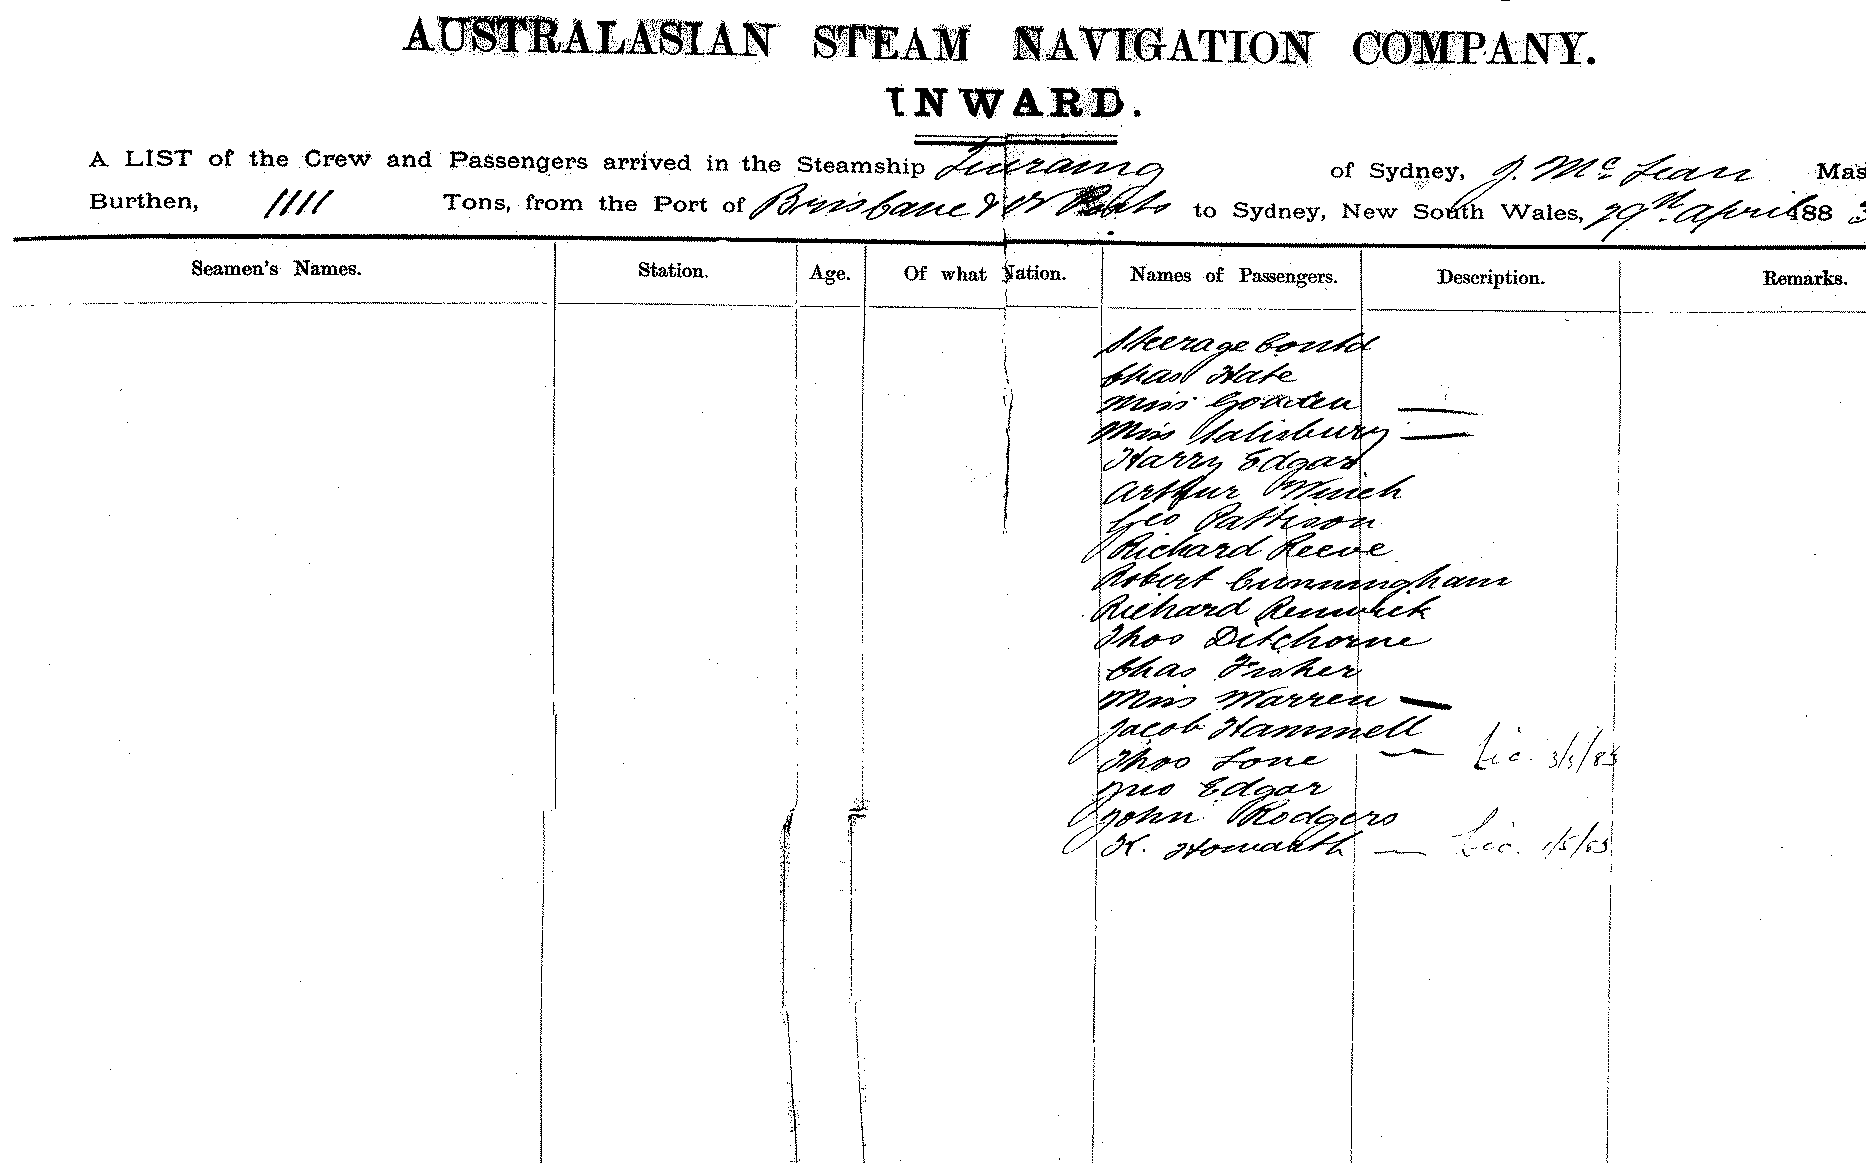 AUSTRALASIAN STEAM NAVIGATION COMPANY.
INWARD.
A LIST of the Crew and Passengers arrived in the Steamship of Sydney, J. McLean Mas
Burthen, 1111 Tons, from the Port of Brisbane & Ports to Sydney, New South Wales, 29th April 1883
Seamen's Names. Station. Age. Of what Nation. Names of Passengers. Description. Remarks.
Steerage Contd
Chas Hate
Miss Gooden —
Miss Salisbury —
Harry Edgar
Arthur Winch
Geo Pattison
Richard Reeve
Robert Cunningham
Richard Renwick
Thos Ditchorne
Chas Fisher
Miss Warren —
Jacob Hammell
Thos Lone — Lic. 3/5/83
Jno Edgar
John Rodgers
H. Howarth — Lic. 1/5/83